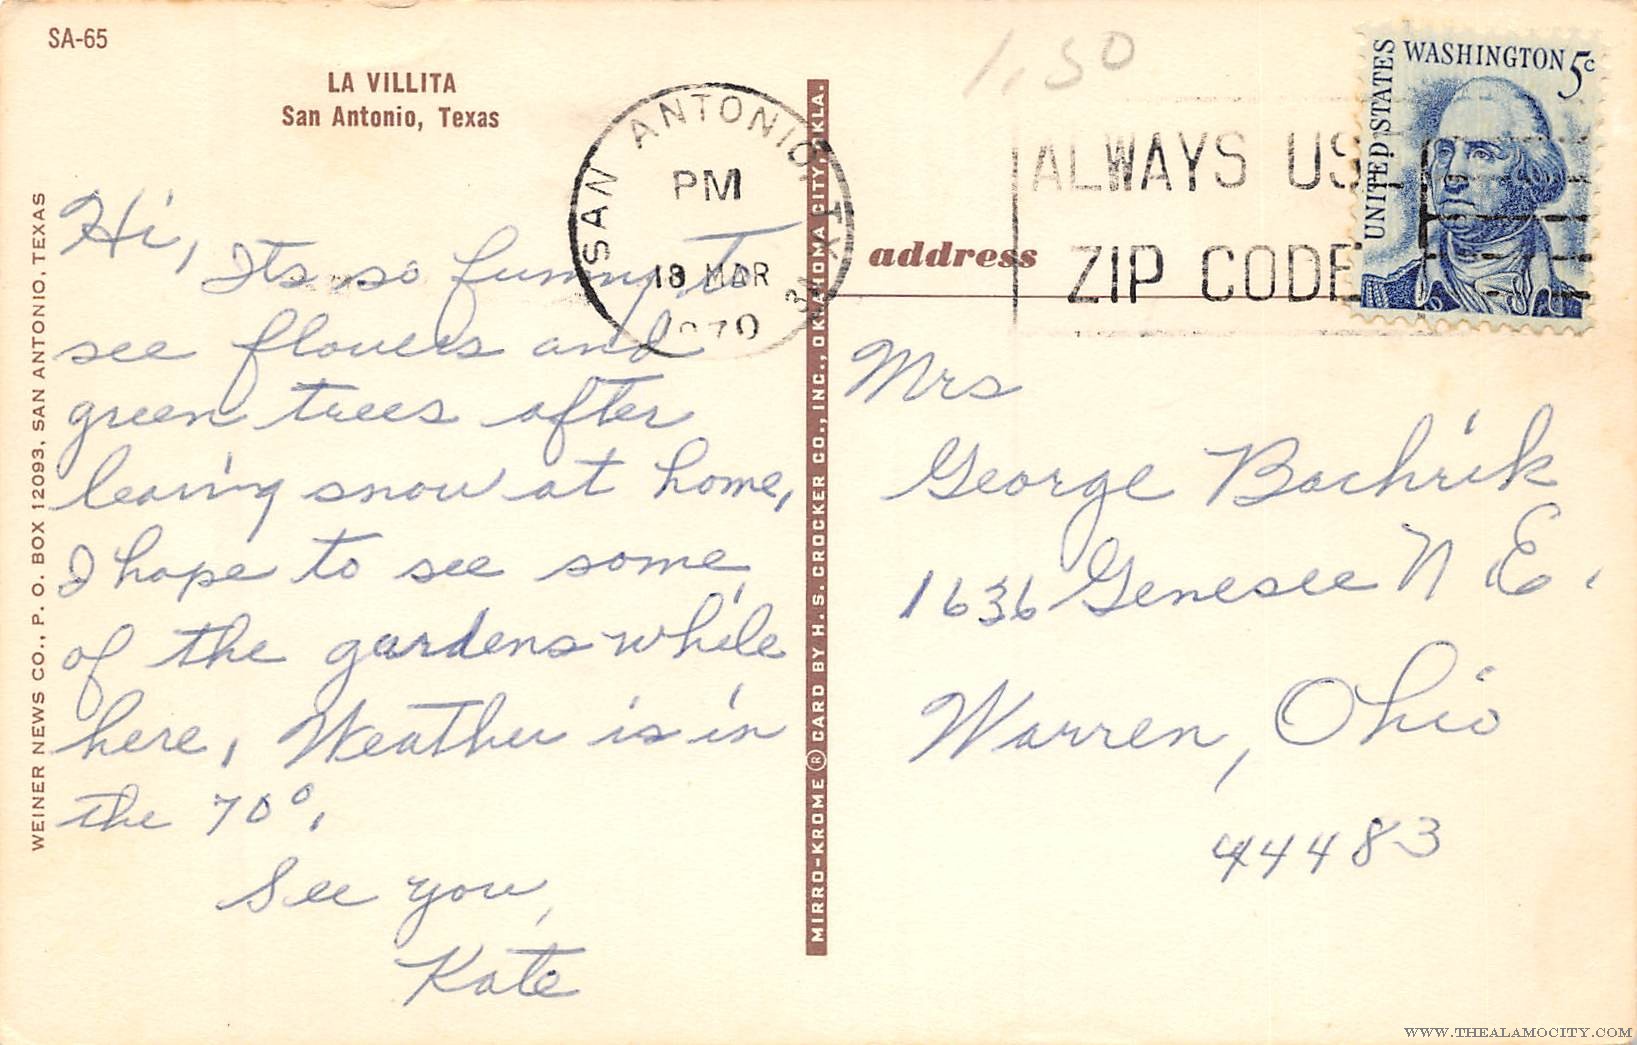 SA-65
LA VILLITA
San Antonio, Texas
WEINER NEWS CO., P. O. BOX 12093, SAN ANTONIO, TEXAS
Hi,
Its so funny to
see flowers and
green trees after
leaving snow at home,
I hope to see some
of the gardens while
here, Weather is in
the 70°,
See you,
Kate
SAN ANTONIO, TX
PM
18 MAR
1970
MIRRO-KROME ® CARD BY H. S. CROCKER CO., INC., OKLAHOMA CITY, OKLA.
1.50
ALWAYS US
ZIP CODE
UNITED STATES
WASHINGTON 5c
address
Mrs
George Bachrik
1636 Genesee N E.
Warren, Ohio
44483
WWW.THEALAMOCITY.COM